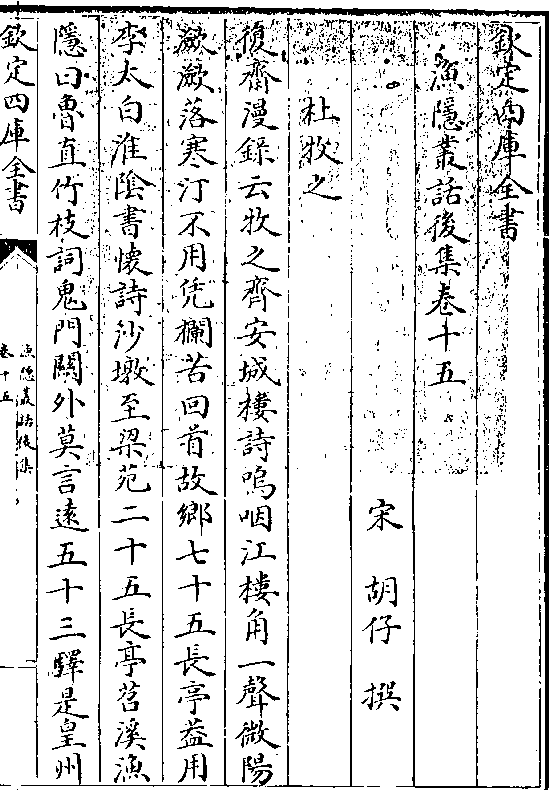 欽定四庫全書
漁隱叢話後集卷十五
宋 胡仔 撰
杜牧之
復齋漫錄云牧之齊安城樓詩嗚咽江樓角一聲微陽
瀲瀲落寒汀不用凭欄苦回首故鄉七十五長亭益用
李太白淮陰書懷詩沙墩至梁苑二十五長亭苕溪漁
隱曰魯直竹枝詞鬼門關外莫言遠五十三驛是皇州
欽定四庫全書
漁隱叢話後集
卷十五